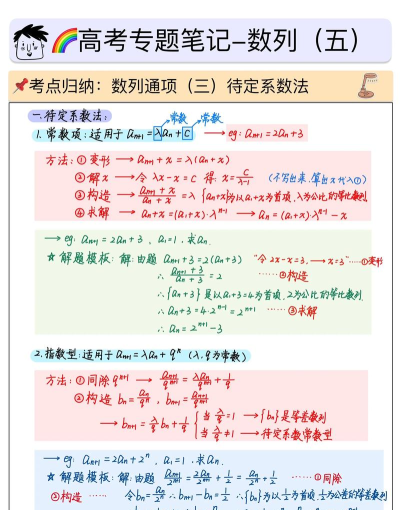 🌈高考专题笔记-数列（五）
📌考点归纳：数列通项（三）待定系数法
一.待定系数法：
常数 常数
1. 常数项：适用于 aₙ₊₁=λaₙ+C → eg: aₙ₊₁=2aₙ+3
方法：① 变形 → aₙ₊₁+x=λ(aₙ+x)
② 解x → 令 λx-x=C 得：x=C/(λ-1) （不写出来，算出x代入①）
③ 构造 → (aₙ₊₁+x)/(aₙ+x)=λ {aₙ+x}为以a₁+x为首项，λ为公比的等比数列
④ 求解 → aₙ+x=(a₁+x)·λⁿ⁻¹ → aₙ=(a₁+x)·λⁿ⁻¹-x
→ eg: aₙ₊₁=2aₙ+3，a₁=1，求aₙ.
☆ 解题模板：解：由题 aₙ₊₁+3=2(aₙ+3) “令2x-x=3，→x=3”……①变形
∴ (aₙ₊₁+3)/(aₙ+3)=2 ……②构造
∴{aₙ+3}是以a₁+3=4为首项，2为公比的等比数列
∴aₙ+3=4·2ⁿ⁻¹=2ⁿ⁺¹ ……③求解
∴aₙ=2ⁿ⁺¹-3
2. 指数型：适用于 aₙ₊₁=λaₙ+qⁿ（λ，q为常数）
方法：① 同除qⁿ⁺¹ → aₙ₊₁/qⁿ⁺¹=λaₙ/qⁿ⁺¹+1/q
② 构造 bₙ=aₙ/qⁿ，bₙ₊₁=aₙ₊₁/qⁿ⁺¹
→ bₙ₊₁=λ/q bₙ+1/q { 当λ/q=1 → {bₙ}是等差数列
当λ/q≠1 → 待定系数常数型
→ eg: aₙ₊₁=2aₙ+2ⁿ，a₁=1，求aₙ.
☆ 解题模板：解：由题 aₙ₊₁/2ⁿ⁺¹=2aₙ/2ⁿ⁺¹+1/2=aₙ/2ⁿ+1/2 ……①同除
②构造 …… 令bₙ=aₙ/2ⁿ ∴bₙ₊₁-bₙ=1/2 ∴{bₙ}为以1/2为首项，1/2为公差的等差数列